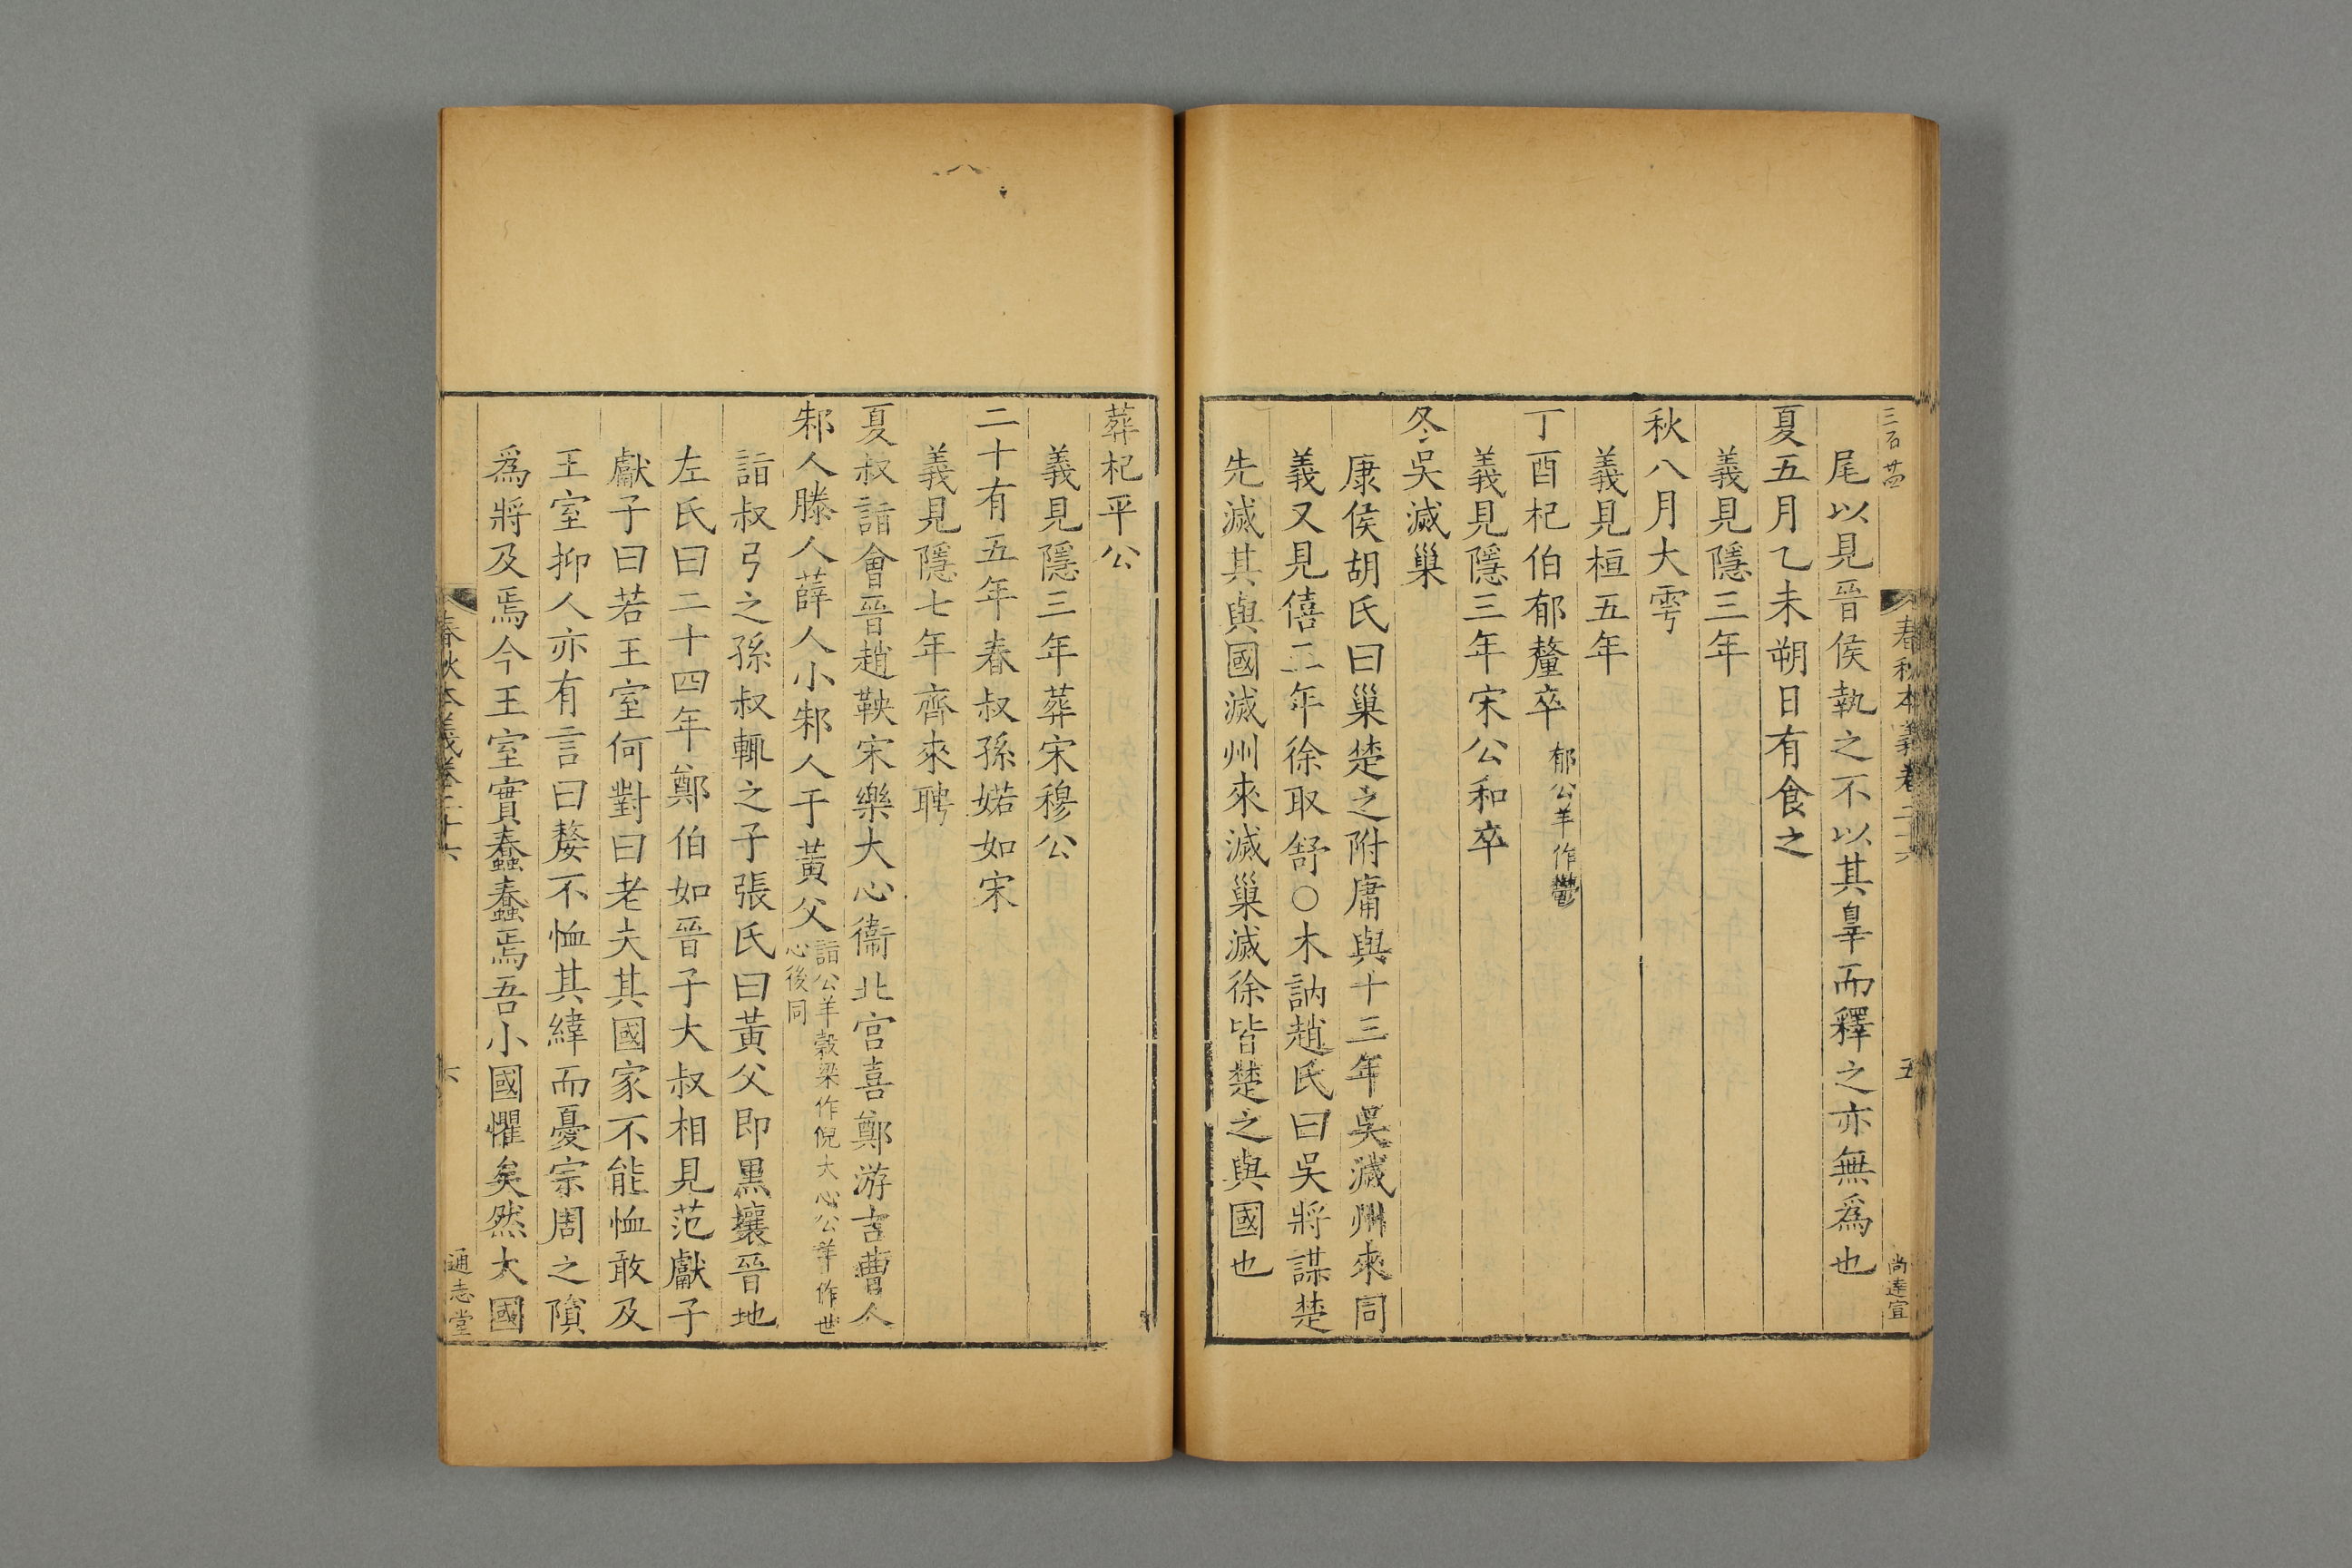 三百廿四
春秋本義卷二十六
五
尚達宜
尾以見晉侯執之不以其辠而釋之亦無爲也
夏五月乙未朔日有食之
義見隱三年
秋八月大雩
義見桓五年
丁酉杞伯郁釐卒郁公羊作鬱
義見隱三年宋公和卒
冬吳滅巢
康侯胡氏曰巢楚之附庸與十三年吳滅州來同
義又見僖三年徐取舒○木訥趙氏曰吳將謀楚
先滅其與國滅州來滅巢滅徐皆楚之與國也
葬杞平公
義見隱三年葬宋穆公
二十有五年春叔孫婼如宋
義見隱七年齊來聘
夏叔詣會晉趙鞅宋樂大心衞北宮喜鄭游吉曹人
邾人滕人薛人小邾人于黃父詣公羊穀梁作倪大心公羊作世
心後同
詣叔弓之孫叔輒之子張氏曰黃父即黑壤晉地
左氏曰二十四年鄭伯如晉子大叔相見范獻子
獻子曰若王室何對曰老夫其國家不能恤敢及
王室抑人亦有言曰嫠不恤其緯而憂宗周之隕
爲將及焉今王室實蠢蠢焉吾小國懼矣然大國
春秋本義卷二十六
六
通志堂